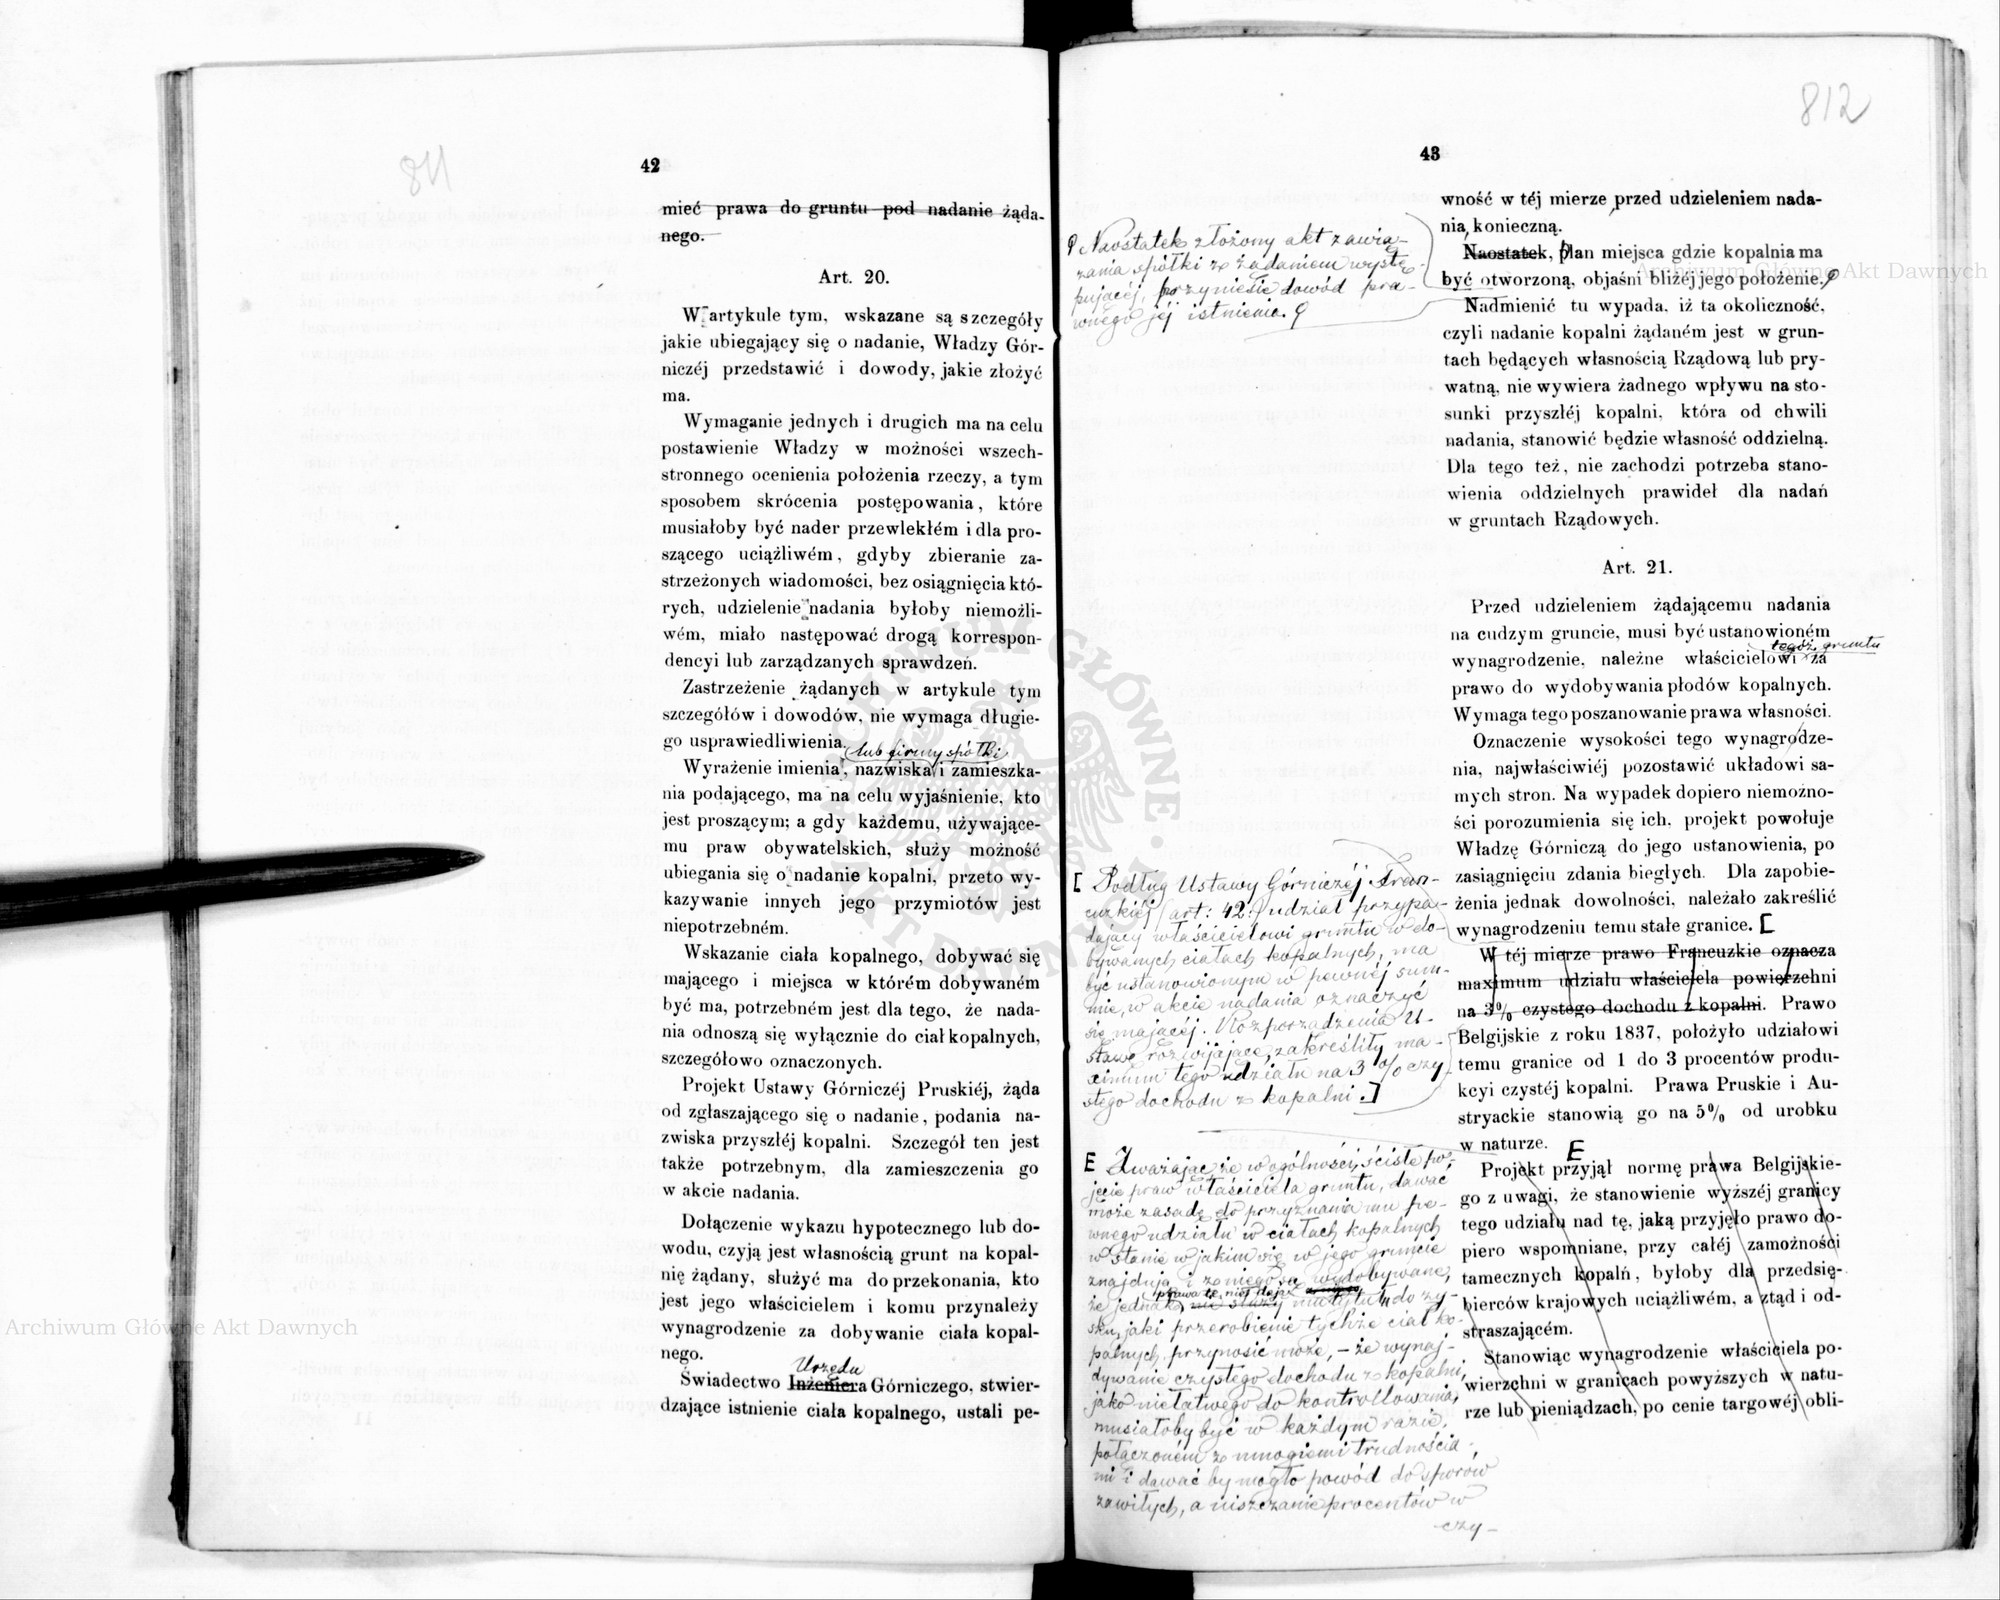 811
42
mieć prawa do gruntu pod nadanie żąda-
nego.
Art. 20.
W artykule tym, wskazane są szczegóły
jakie ubiegający się o nadanie, Władzy Gór-
niczéj przedstawić i dowody, jakie złożyć
ma.
Wymaganie jednych i drugich ma na celu
postawienie Władzy w możności wszech-
stronnego ocenienia położenia rzeczy, a tym
sposobem skrócenia postępowania, które
musiałoby być nader przewlekłém i dla pro-
szącego uciążliwém, gdyby zbieranie za-
strzeżonych wiadomości, bez osiągnięcia któ-
rych, udzielenie nadania byłoby niemożli-
wém, miało następować drogą korrespon-
dencyi lub zarządzanych sprawdzeń.
Zastrzeżenie żądanych w artykule tym
szczegółów i dowodów, nie wymaga długie-
go usprawiedliwienia.
lub firmy spółki
Wyrażenie imienia, nazwiska i zamieszka-
nia podającego, ma na celu wyjaśnienie, kto
jest proszącym; a gdy każdemu, używające-
mu praw obywatelskich, służy możność
ubiegania się o nadanie kopalni, przeto wy-
kazywanie innych jego przymiotów jest
niepotrzebném.
Wskazanie ciała kopalnego, dobywać się
mającego i miejsca w którém dobywaném
być ma, potrzebném jest dla tego, że nada-
nia odnoszą się wyłącznie do ciał kopalnych,
szczegółowo oznaczonych.
Projekt Ustawy Górniczéj Pruskiéj, żąda
od zgłaszającego się o nadanie, podania na-
zwiska przyszłéj kopalni. Szczegół ten jest
także potrzebnym, dla zamieszczenia go
w akcie nadania.
Dołączenie wykazu hypotecznego lub do-
wodu, czyją jest własnością grunt na kopal-
nię żądany, służyć ma do przekonania, kto
jest jego właścicielem i komu przynależy
wynagrodzenie za dobywanie ciała kopal-
nego.
Urzędu
Świadectwo Inżeniera Górniczego, stwier-
dzające istnienie ciała kopalnego, ustali pe-
812
43
wność w téj mierze przed udzieleniem nada-
nia, konieczną.
Naostatek, Plan miejsca gdzie kopalnia ma
być otworzoną, objaśni bliżéj jego położenie.
Nadmienić tu wypada, iż ta okoliczność,
czyli nadanie kopalni żądaném jest w grun-
tach będących własnością Rządową lub pry-
watną, nie wywiera żadnego wpływu na sto-
sunki przyszłéj kopalni, która od chwili
nadania, stanowić będzie własność oddzielną.
Dla tego też, nie zachodzi potrzeba stano-
wienia oddzielnych prawideł dla nadań
w gruntach Rządowych.
Art. 21.
Przed udzieleniem żądającemu nadania
na cudzym gruncie, musi być ustanowioném
tegoż gruntu
wynagrodzenie, należne właścicielowi za
prawo do wydobywania płodów kopalnych.
Wymaga tego poszanowanie prawa własności.
Oznaczenie wysokości tego wynagrodze-
nia, najwłaściwiéj pozostawić układowi sa-
mych stron. Na wypadek dopiero niemożno-
ści porozumienia się ich, projekt powołuje
Władzę Górniczą do jego ustanowienia, po
zasiągnięciu zdania biegłych. Dla zapobie-
żenia jednak dowolności, należało zakreślić
wynagrodzeniu temu stałe granice. [
W téj mierze prawo Francuzkie oznacza
maximum udziału właściciela powierzchni
na 3% czystego dochodu z kopalni. Prawo
Belgijskie z roku 1837, położyło udziałowi
temu granice od 1 do 3 procentów produ-
kcyi czystéj kopalni. Prawa Pruskie i Au-
stryackie stanowią go na 5% od urobku
w naturze. E
Projekt przyjął normę prawa Belgijskie-
go z uwagi, że stanowienie wyższéj granicy
tego udziału nad tę, jaką przyjęło prawo do-
piero wspomniane, przy całéj zamożności
tamecznych kopalń, byłoby dla przedsię-
bierców krajowych uciążliwém, a ztąd i od-
straszającém.
Stanowiąc wynagrodzenie właściciela po-
wierzchni w granicach powyższych w natu-
rze lub pieniądzach, po cenie targowéj obli-
Naostatek złożony akt zawią-
zania spółki z żądaniem wystę-
pującéj, przyniesie dowód pra-
wnego jéj istnienia.
[ Podług Ustawy Górniczéj Fran-
cuzkiéj (art: 42.) udział przypa-
dający właścicielowi gruntu w do-
bywanych ciałach kopalnych, ma
być ustanowionym w pewnéj sum-
mie, w akcie nadania oznaczyć
się mającéj. Rozporządzenia U-
stawę rozwijające, zakreśliły ma-
ximum tego udziału na 3% czy-
stego dochodu z kopalni. ]
E Zważając że w ogólności, ściśle po-
jęcie praw właściciela gruntu, dawać
może zasadę do przyznania mu pe-
wnego udziału w ciałach kopalnych
w stanie w jakim się w jego gruncie
znajdują i z niego są wydobywane,
prawa te, nie dają
że jednak, nie służy mu tytuł do zy-
sku, jaki przerobienie tychże ciał ko-
palnych przynosić może, – że wynaj-
dywanie czystego dochodu z kopalni,
jako niełatwego do kontrollowania,
musiałoby być w każdym razie,
połączoném z mnogiemi trudnościa-
mi i dawać by mogło powód do sporów
zawiłych, a niszczanie procentów w
czy-
Archiwum Główne Akt Dawnych
Archiwum Główne Akt Dawnych
ARCHIWUM GŁÓWNE AKT DAWNYCH